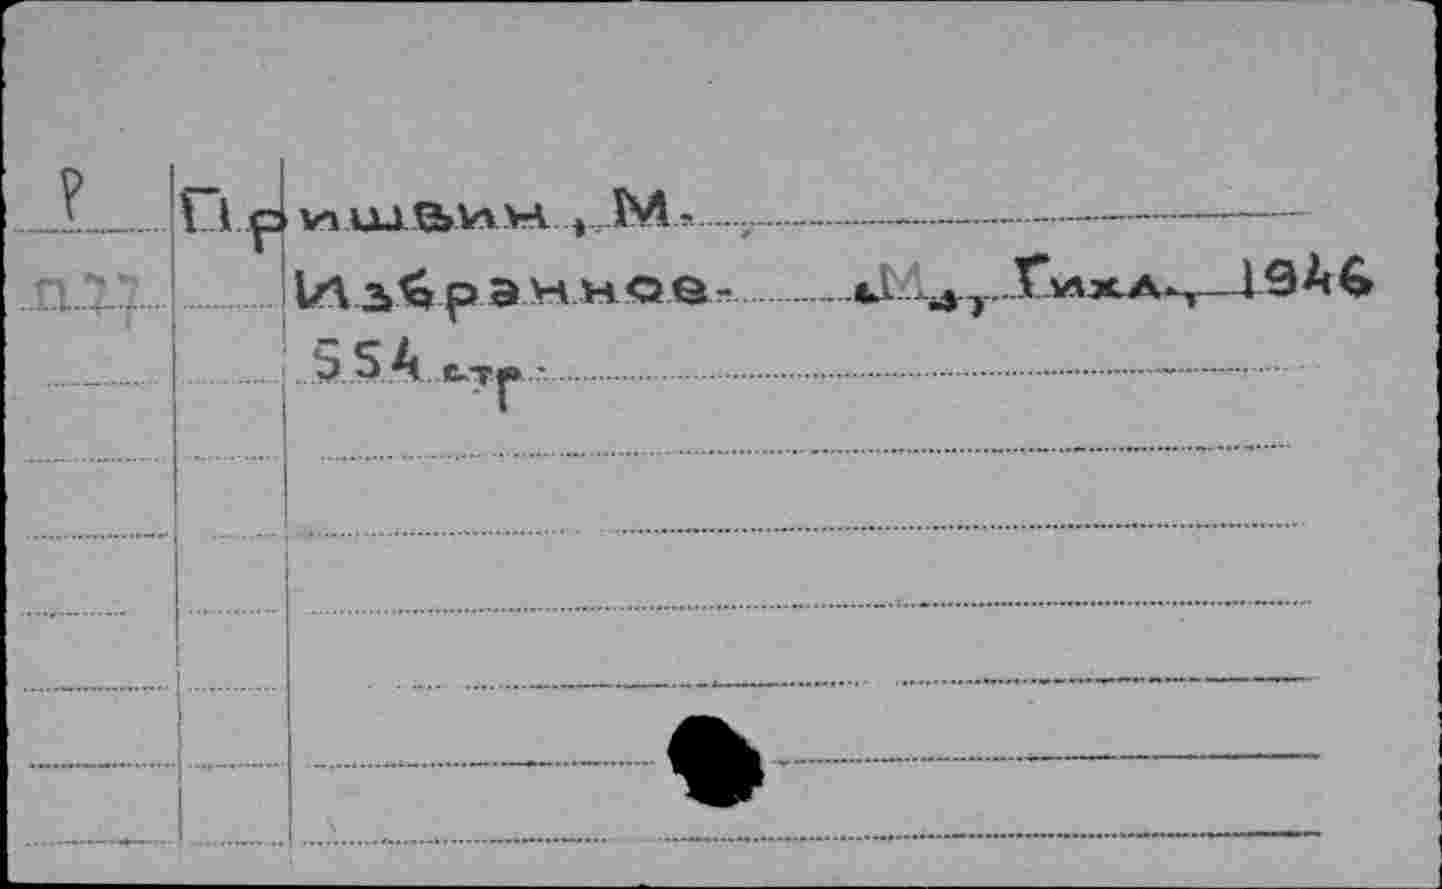 Р Пришвин, М.
П77 Избранное. М., Гихл., 1946
554 стр.